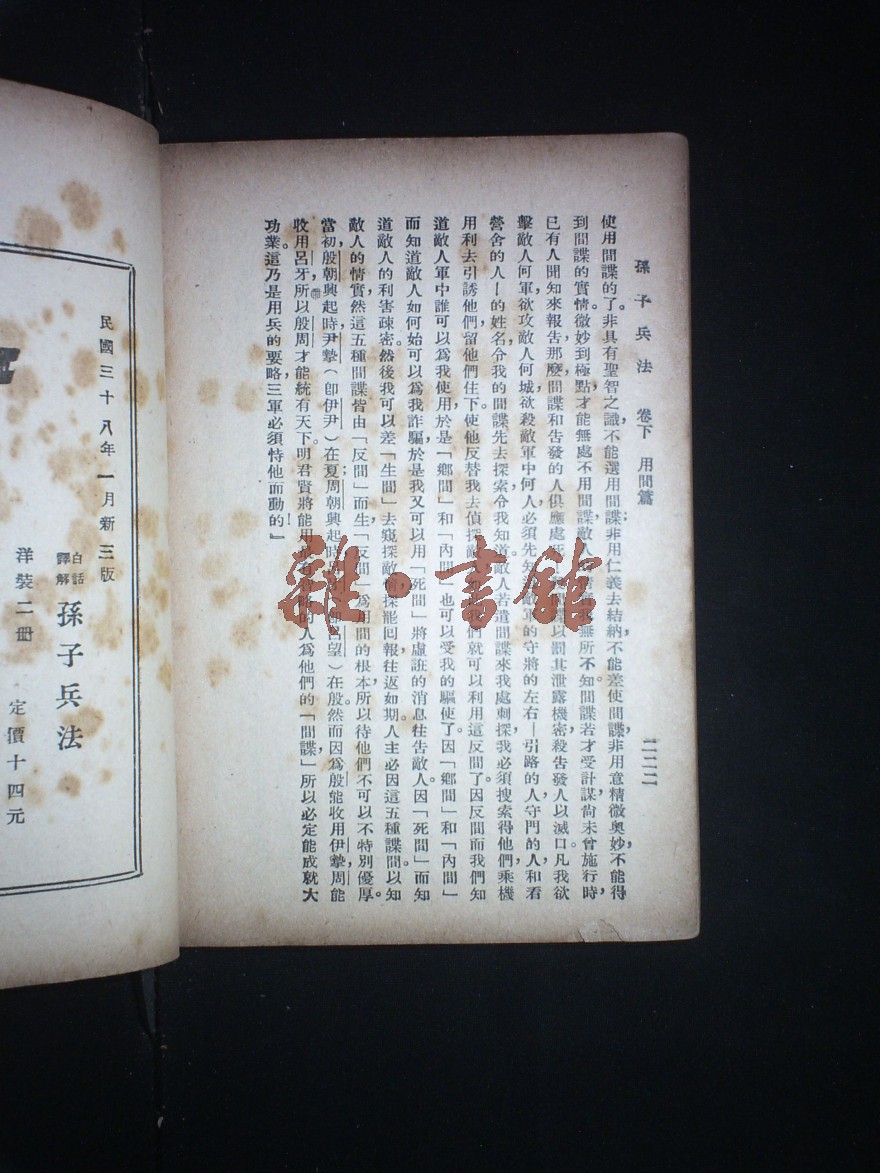 孫子兵法　卷下　用間篇　二二二
使用間諜的了。非具有聖智之識,不能選用間諜;非用仁義去結納,不能差使間諜,非用意精微奧妙,不能得
到間諜的實情。微妙到極點,才能無處不用間諜,敵人無所不知。間諜若才受計謀,尚未曾施行時,
已有人聞知來報告,那麼間諜和告發的人,俱應處死以罰其泄露機密,殺告發人以滅口。凡我欲
擊敵人何軍,欲攻敵人何城,欲殺敵軍中何人,必須先知道敵軍的守將的左右—引路的人,守門的人和看
營舍的人—的姓名,令我的間諜先去探索,令我知道。敵人若遣間諜來我處刺探,我必須搜索得他們,乘機
用利去引誘他們,留他們住下。使他反替我去偵探敵人我們就可以利用這反間了。因反間而我們知
道敵人軍中誰可以為我使用,於是「鄉間」和「內間」也可以受我的驅使了。因「鄉間」和「內間」
而知道敵人如何始可以為我詐騙,於是我又可以用「死間」將虛誑的消息往告敵人。因「死間」而知
道敵人的利害疎密。然後我可以差「生間」去窺探敵情,探罷回報,往返如期。人主必因這五種諜間以知
敵人的情實,然這五種間諜皆由「反間」而生;「反間」為用間的根本,所以待他們不可以不特別優厚。
當初殷朝興起時,尹摯(即伊尹)在夏;周朝興起時,呂望)在殷。然而因為殷能收用伊摯,周能
收用呂牙,所以殷周才能統有天下。明君賢將,能用的人為他們的「間諜」,所以必定能成就大
功業。這乃是用兵的要略,三軍必須恃他而動的!』
民國三十八年一月新三版
白話譯解　孫子兵法
洋裝二册　定價十四元
雜·書館